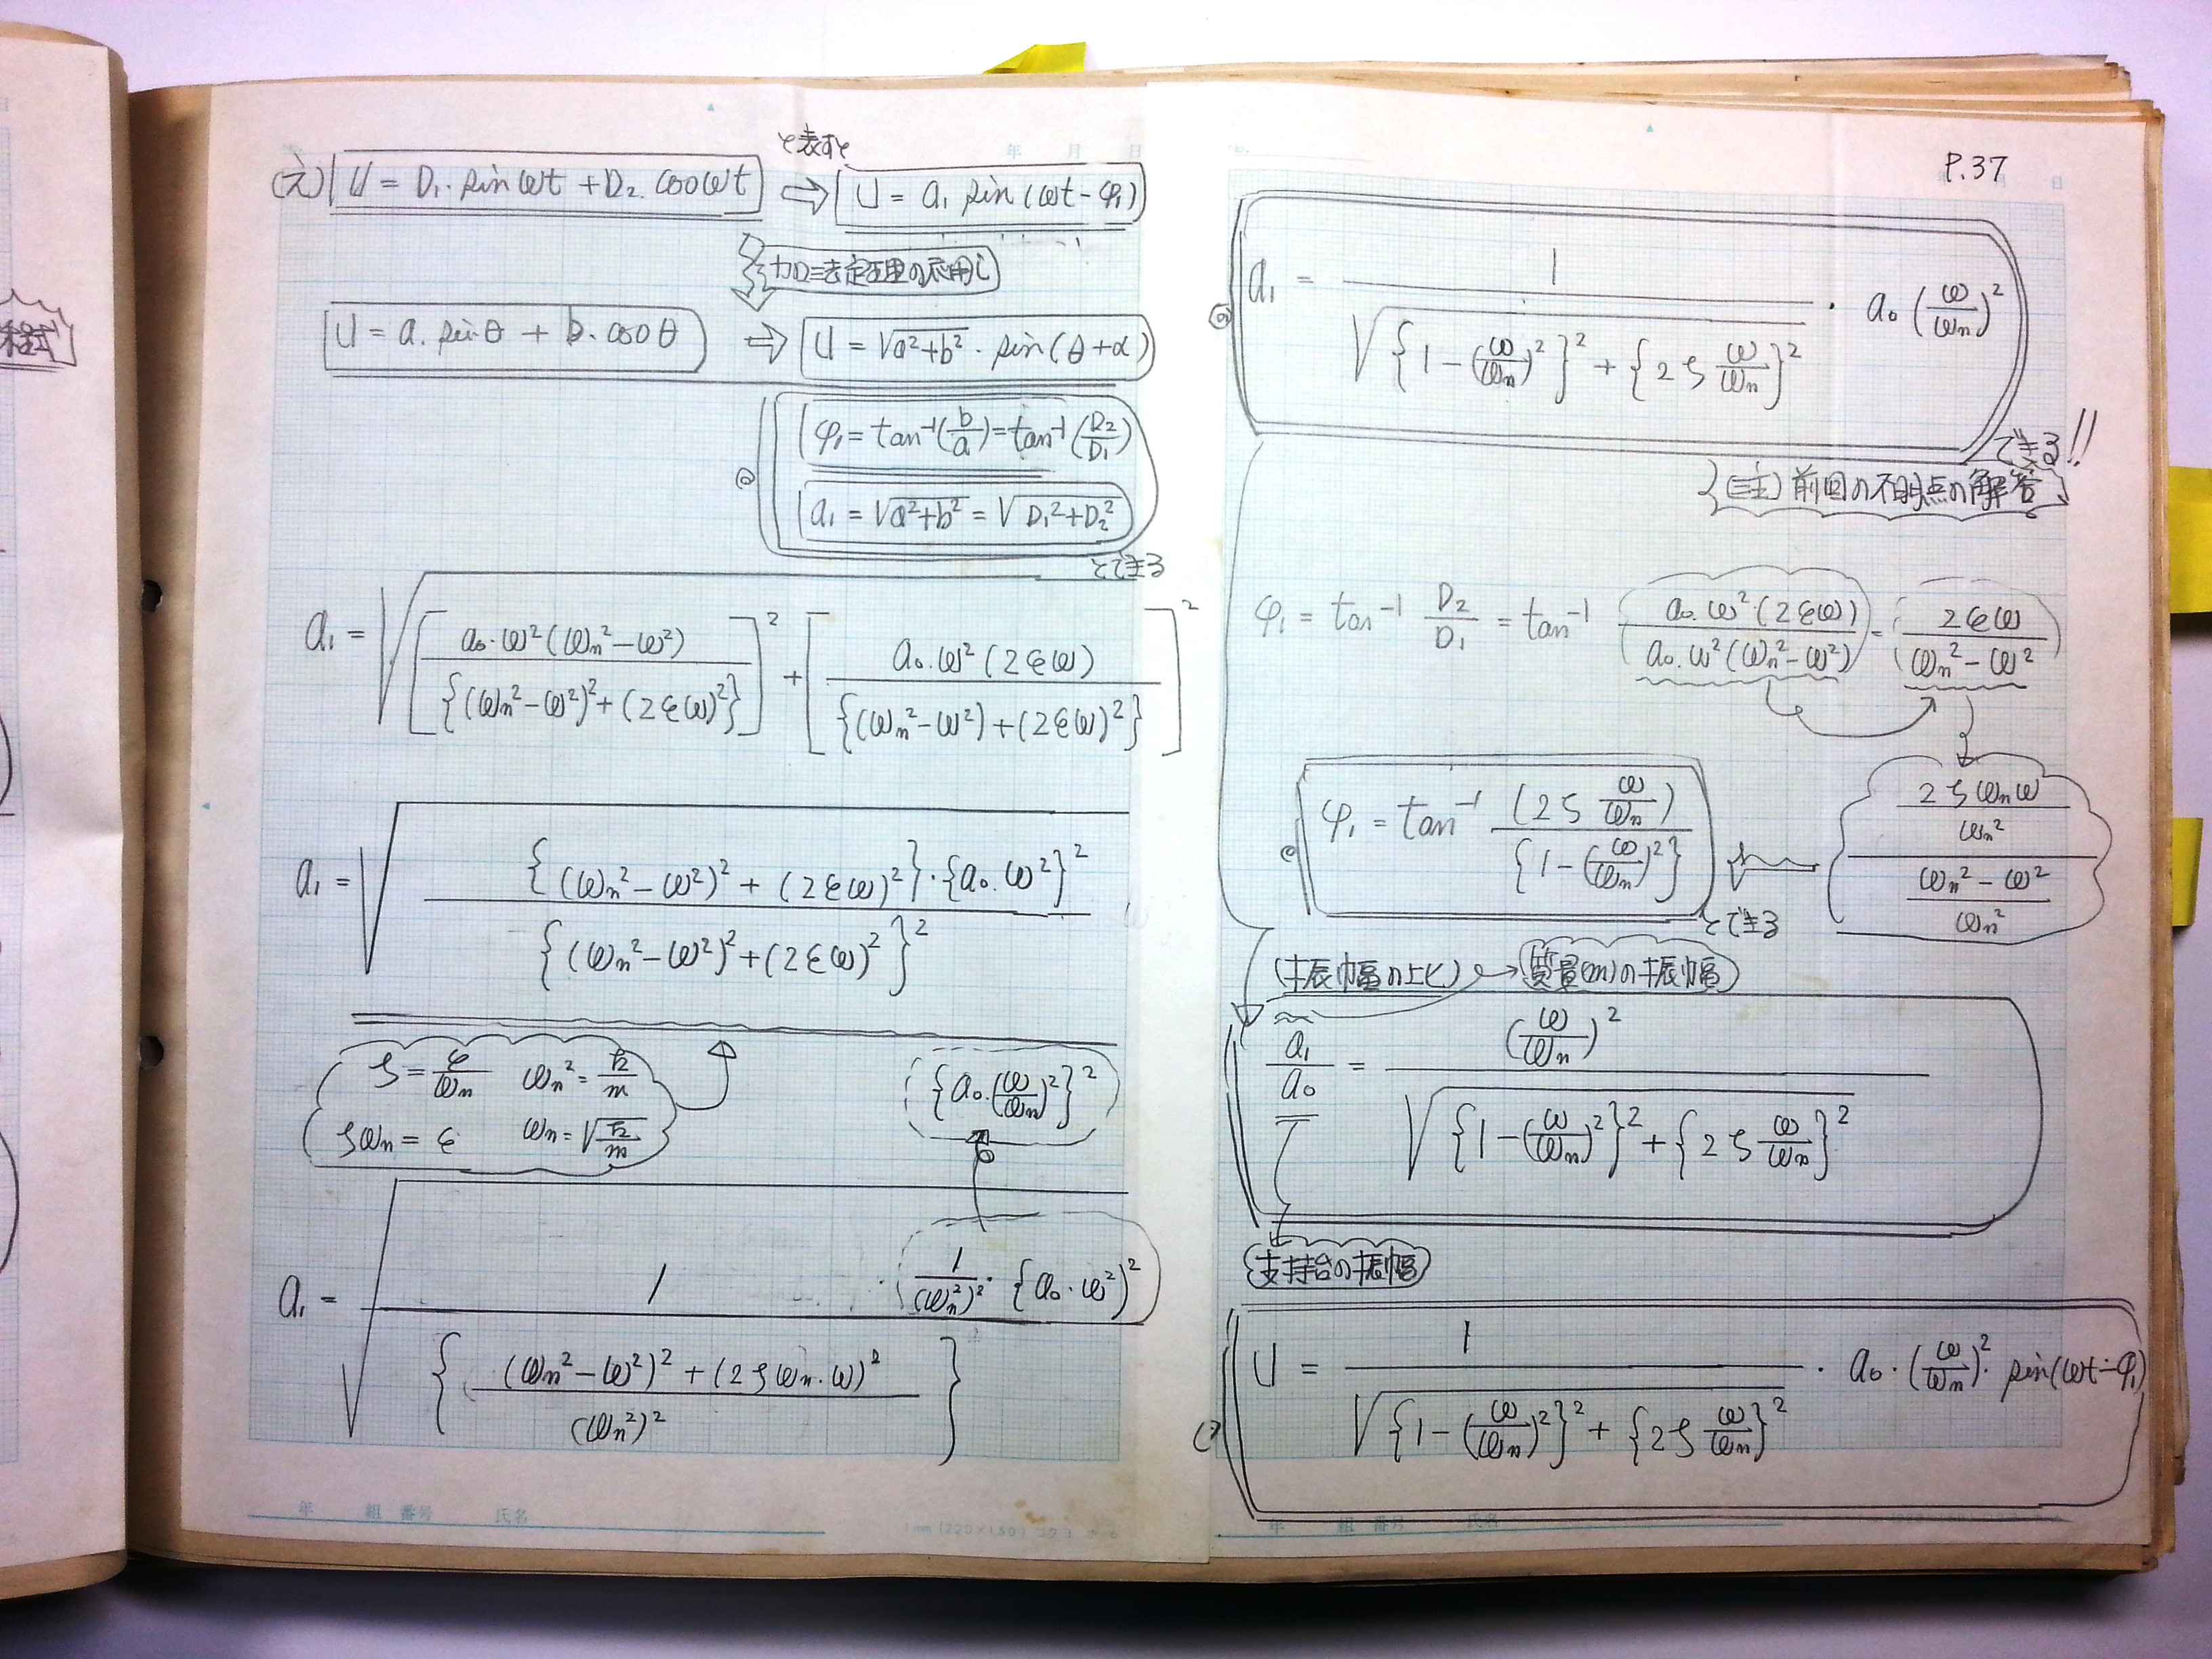 程式
年 月 日
と表すと
(注) U = D₁・sin ωt + D₂・cos ωt ⇨ U = a₁ sin(ωt − φ₁)
加法定理の応用し
U = a・sin θ + b・cos θ ⇨ U = √(a²+b²)・sin(θ+α)
φ₁ = tan⁻¹(b/a) = tan⁻¹(D₂/D₁)
◎
a₁ = √(a²+b²) = √(D₁²+D₂²)
とできる
a₁ = √([a₀・ω²(ωn²−ω²) / {(ωn²−ω²)²+(2εω)²}]² + [a₀・ω²(2εω) / {(ωn²−ω²)+(2εω)²}]²)
a₁ = √({(ωn²−ω²)² + (2εω)²}・{a₀・ω²}² / {(ωn²−ω²)²+(2εω)²}²)
ζ = ε/ωn ωn² = k/m
ζωn = ε ωn = √(k/m)
{a₀・(ω/ωn)²}²
a₁ = √(1 / {((ωn²−ω²)² + (2ζωn・ω)²) / (ωn²)²}・1/(ωn²)²・{a₀・ω²)²
年 組 番号 氏名
1mm (220×150) コクヨ
No.
P.37
年 月 日
◎ a₁ = 1 / √({1−(ω/ωn)²}² + {2ζ ω/ωn}²)・a₀(ω/ωn)²
できる!!
(注) 前回の不明点の解答
φ₁ = tan⁻¹ D₂/D₁ = tan⁻¹ a₀・ω²(2εω) / a₀・ω²(ωn²−ω²) = 2εω / ωn²−ω²
2ζωnω / ωn²
ωn²−ω² / ωn²
◎ φ₁ = tan⁻¹ (2ζ ω/ωn) / {1−(ω/ωn)²}
とできる
(振幅の比) → 質量(m)の振幅
a₁/a₀ = (ω/ωn)² / √({1−(ω/ωn)²}² + {2ζ ω/ωn}²)
支持台の振幅
U = 1 / √({1−(ω/ωn)²}² + {2ζ ω/ωn}²)・a₀・(ω/ωn)²・sin(ωt−φ₁)
年 組 番号 氏名